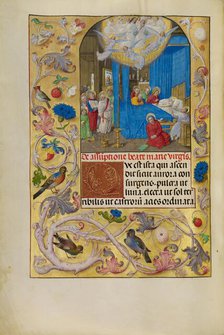 De assumptione beate marie virgis.
Ve est ista que ascen
dit sicut aurora con
surgens pulcra ut
luna electa ut sol ter
ribilis ut castrorū acies ordinata